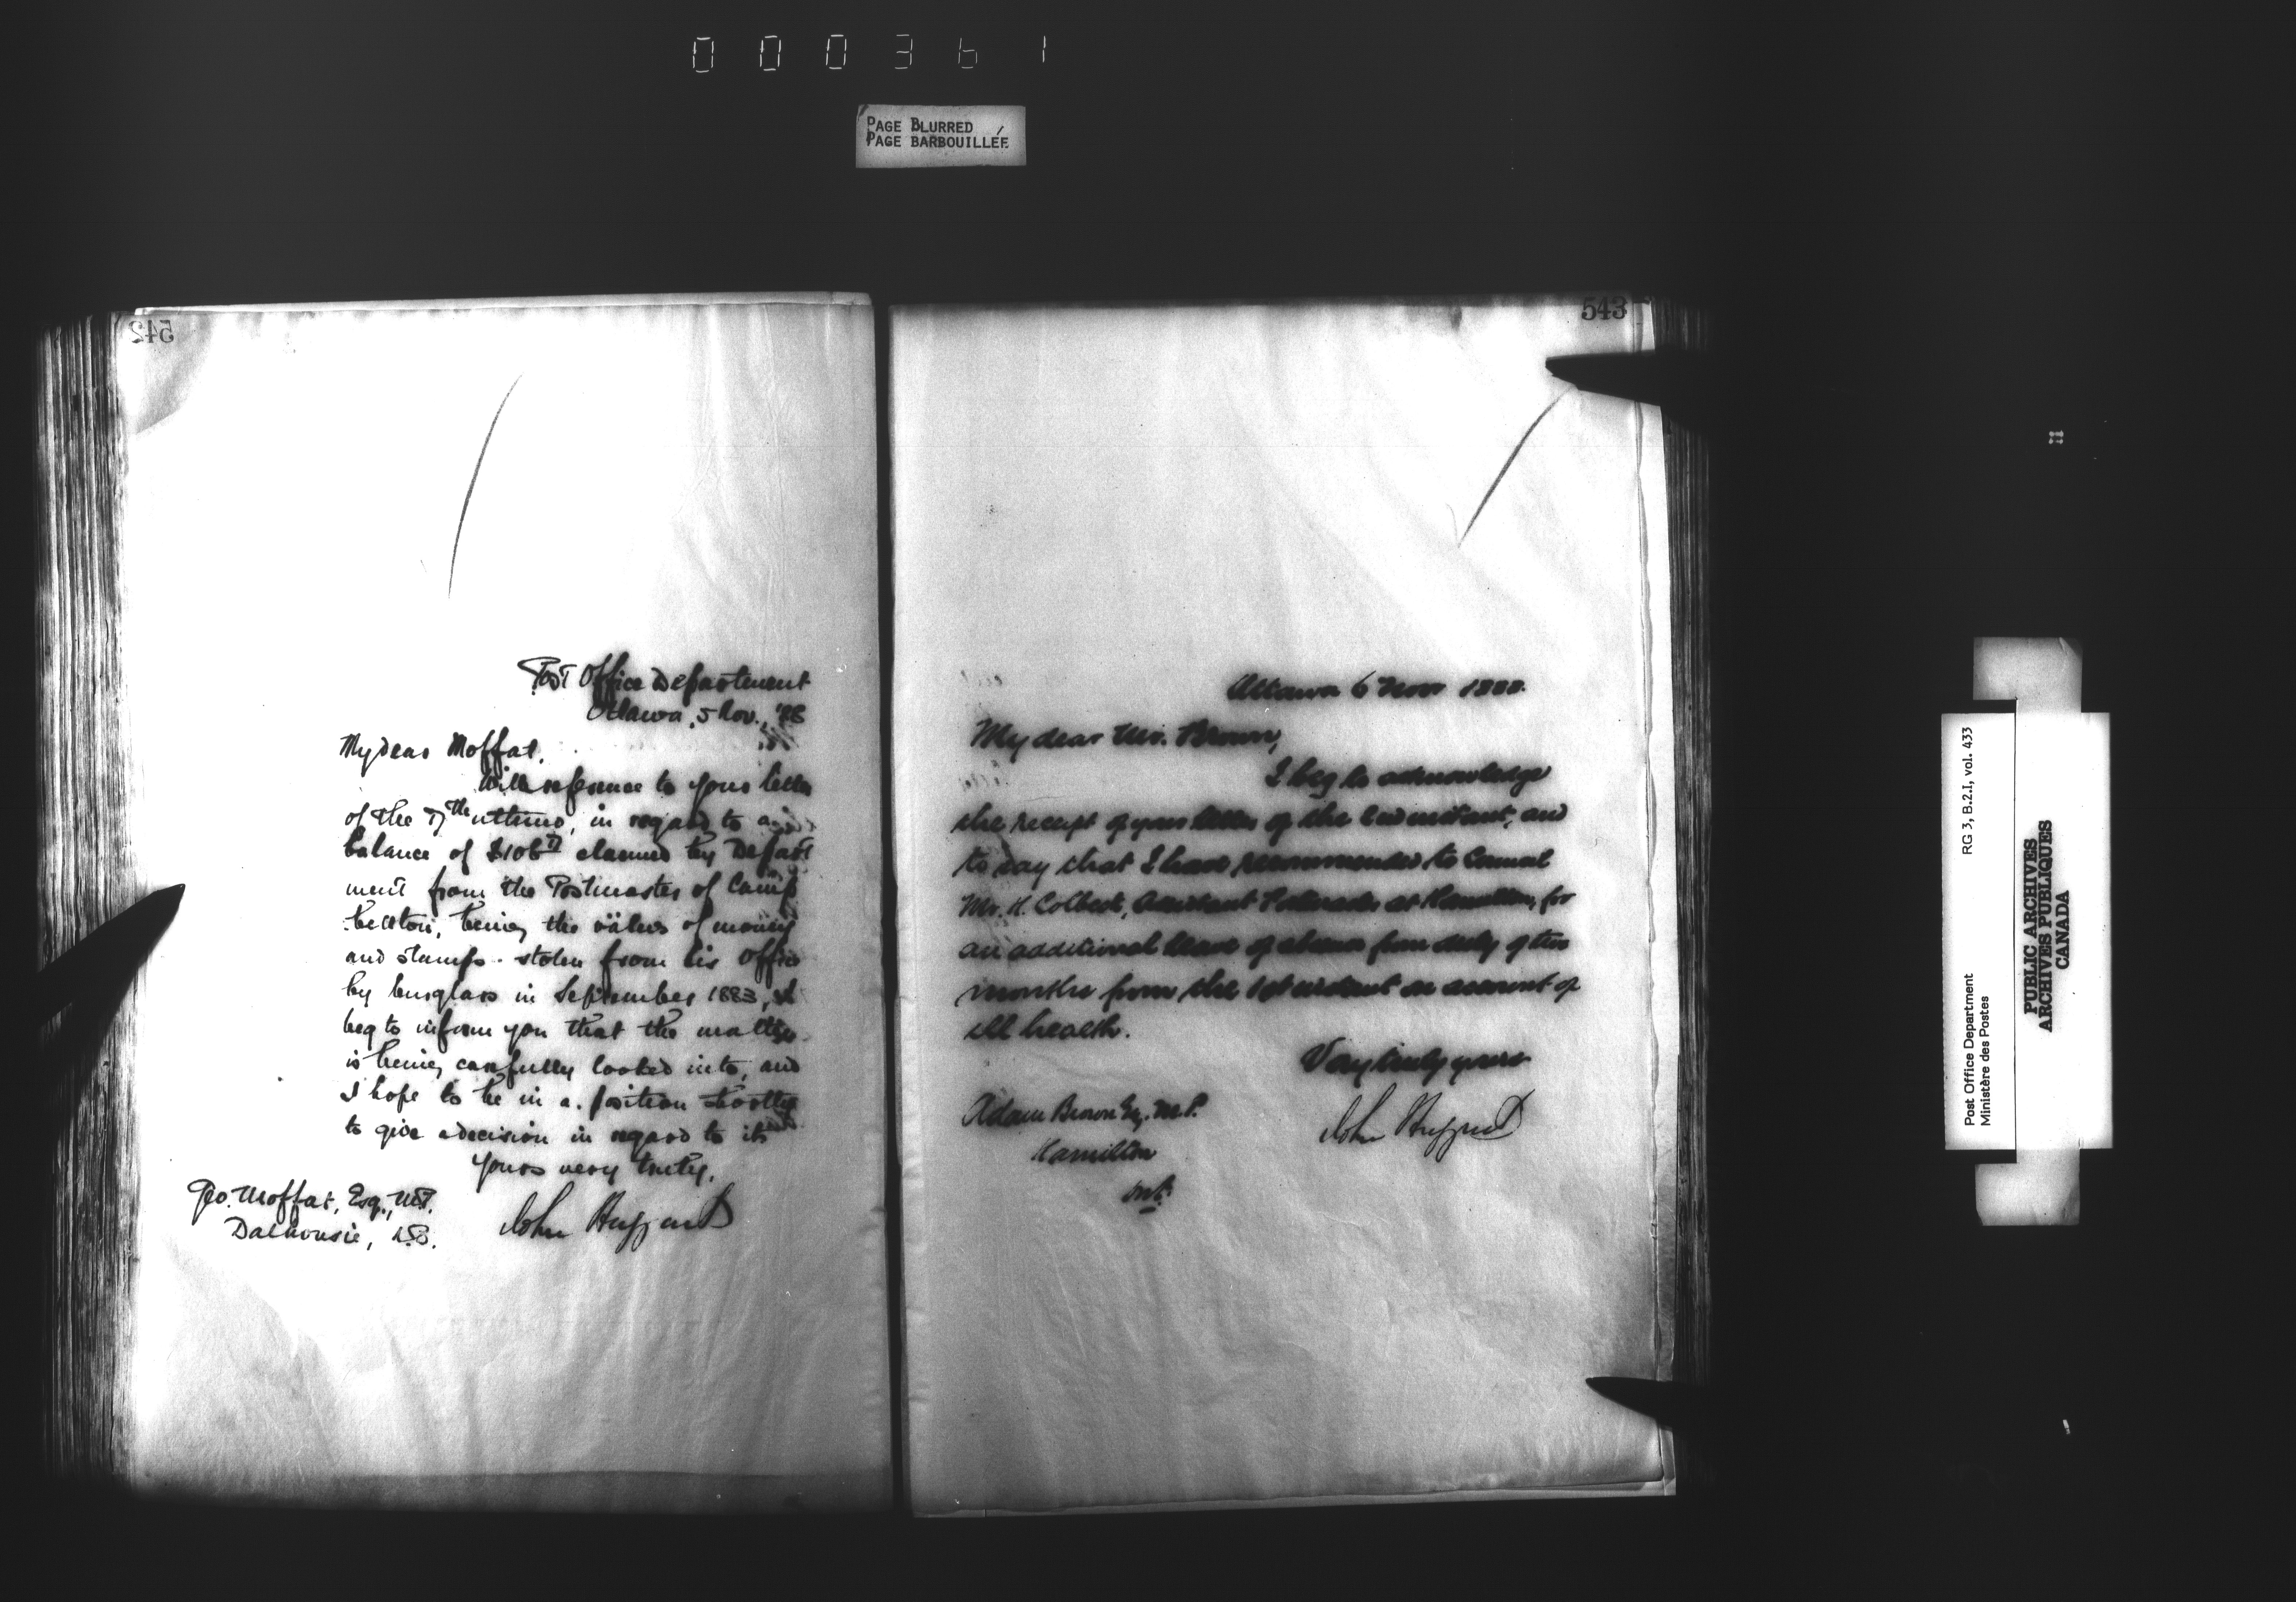 000361
PAGE BLURRED
PAGE BARBOUILLÉE
542
Post Office Department
Ottawa, 5 Nov., '88
My dear Moffat,
With reference to your letter
of the ultimo, in regard to a
balance of claimed by Depart
ment from the Postmaster of Camp
bellton, being the value of money
and stamps stolen from his Office
by burglars in September 1883, I
beg to inform you that the matter
is being carefully looked into, and
I hope to be in a position shortly
to give a decision in regard to it.
Yours very truly,
John Haggart
Geo. Moffat, Esq., M.P.
Dalhousie, N.B.
543
Ottawa 6 Nov 1888.
My dear Mr. Brown,
I beg to acknowledge
the receipt of your letter of the 2nd instant, and
to say that I have recommended to Council
Mr. H. Colbeck, Assistant Postmaster at Hamilton, for
an additional leave of absence from duty of two
months from the 1st instant on account of
ill health.
Very truly yours
John Haggart
Adam Brown Esq. M.P.
Hamilton
Ont.
Post Office Department
Ministère des Postes
RG 3, B.2.I, vol. 433
PUBLIC ARCHIVES
ARCHIVES PUBLIQUES
CANADA